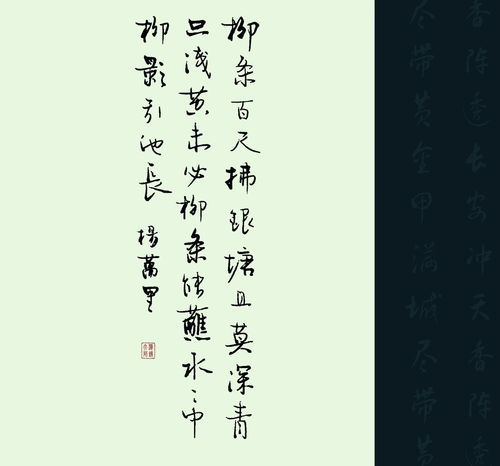 柳条百尺拂銀塘且莫深青
只淺黄未必柳条能蘸水〻中
柳影引他長
楊萬里
香阵透长安冲天香阵透
尽带黄金甲满城尽带黄